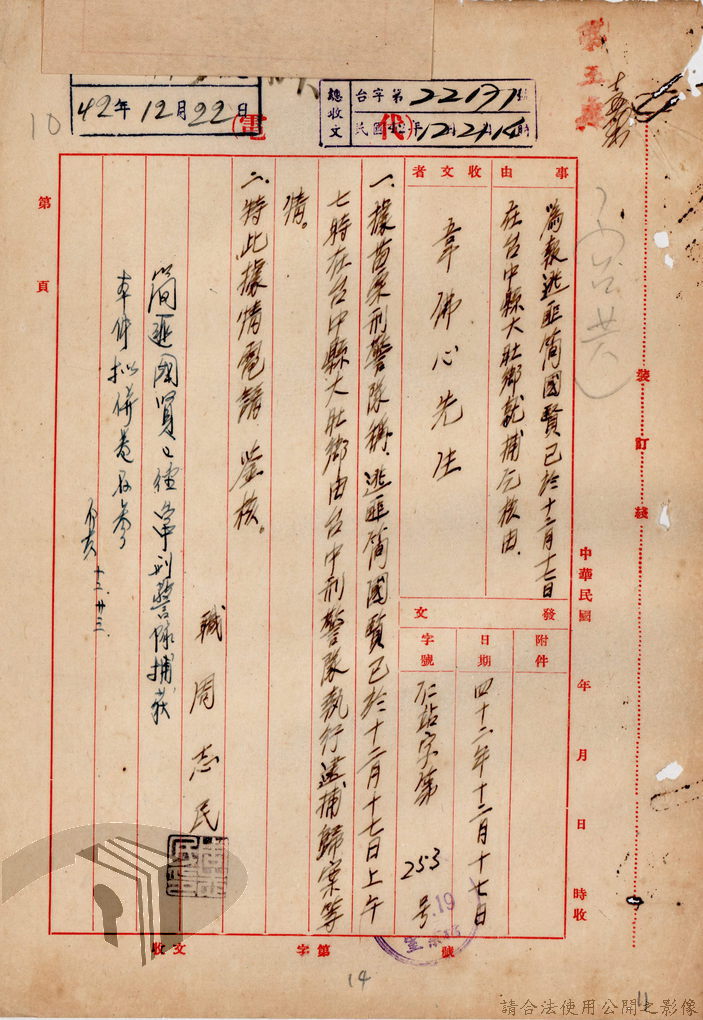 42年12月22日
總收文 台字第22171號
民國42年12月21日14時
代電
事由
為報逃匪簡國賢已於十二月十七日
在台中縣大肚鄉就捕乞核由
收文者
韋佛心先生
發文
附件
日期 四十二年十二月十七日
字號 仁站字第253号
一、據苗栗刑警隊稱：逃匪簡國賢已於十二月十七日上午
七時在台中縣大肚鄉由台中刑警隊執行逮捕歸案等
情。
二、特此據情電請鑒核。
職 周志民
簡匪國賢已經台中刑警隊捕获
本件拟併卷存參
十二、廿三、
第 頁
裝訂綫
中華民國 年 月 日 時收
收文 字第 號
19
10
14
11
請合法使用公開之影像